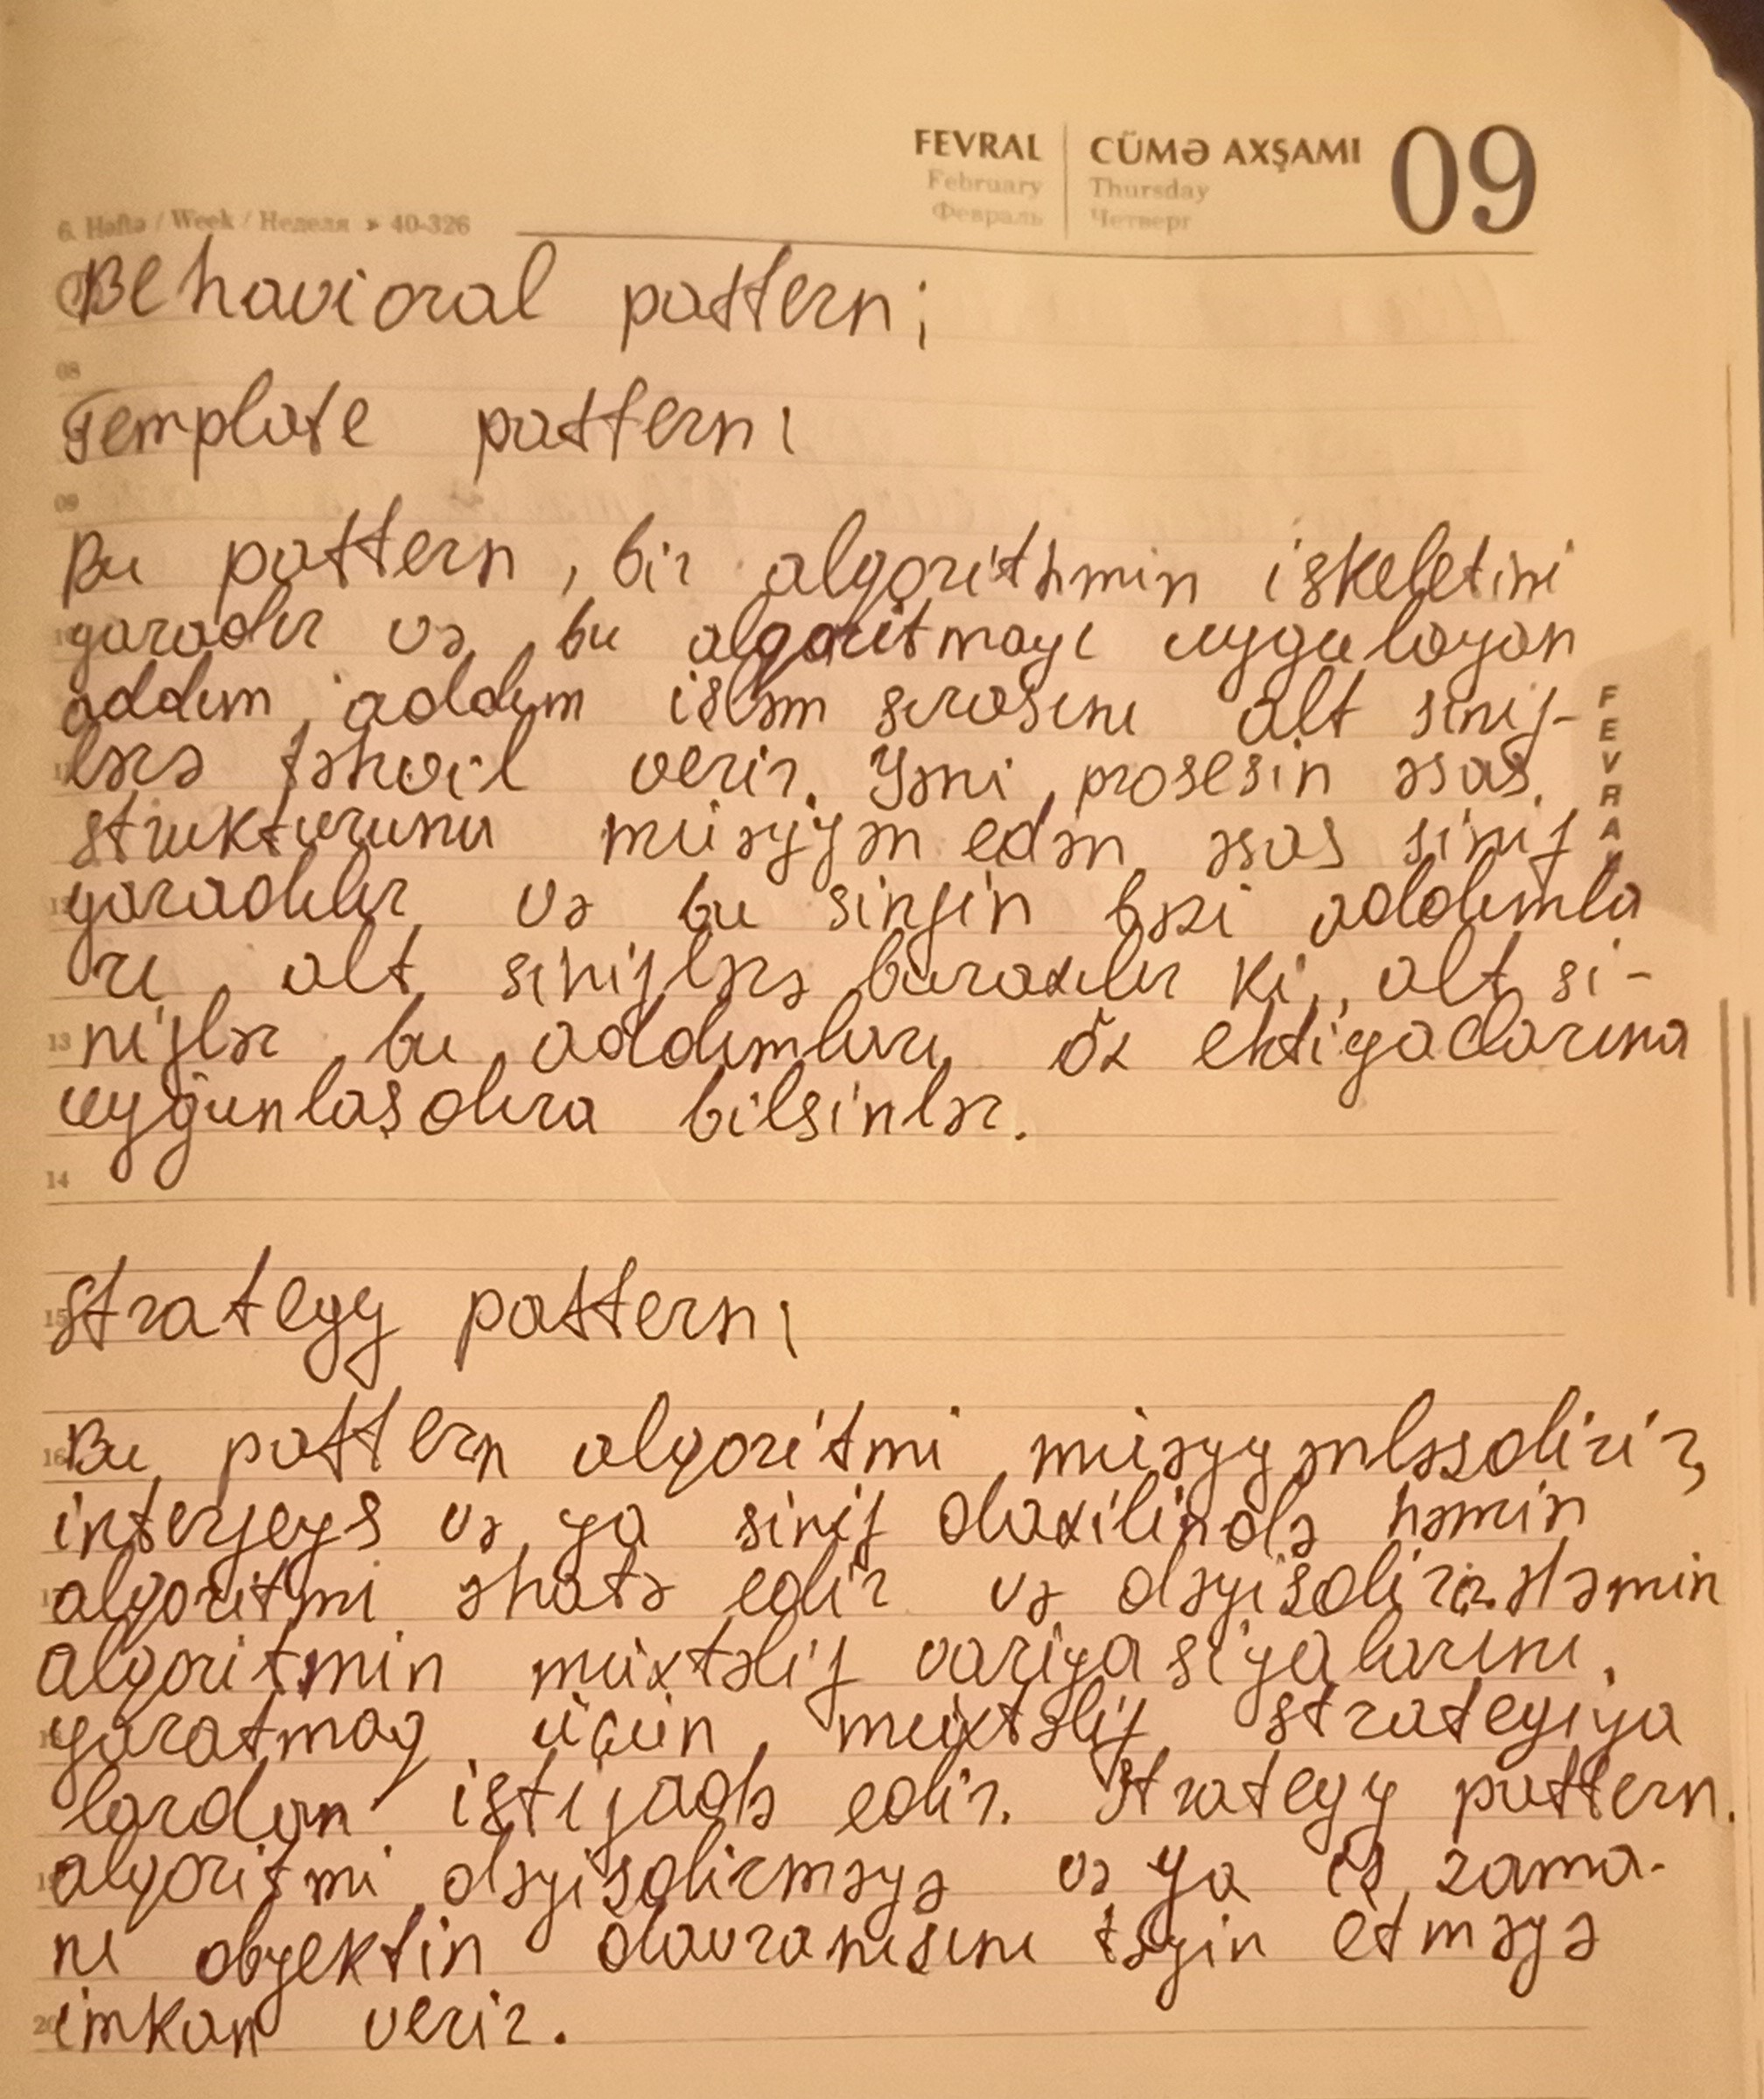 FEVRAL CÜMƏ AXŞAMI 09
February Thursday
Февраль Четверг
6. Həftə / Week / Неделя » 40-326
Behavioral pattern;
08
Template pattern;
09
Bu pattern, bir algorithmin iskeletini
yaradır və bu algoritmayı uygulayan
addım addım işləm sırasını alt sinif-
lərə təhvil verir. Yəni prosesin əsas
strukturunu müəyyən edən əsas sinif
yaradılır və bu sinfin bəzi addımla
rı alt siniflərə buraxılır ki, alt si-
13 niflər bu addımları öz ehtiyaclarına
uyğunlaşdıra bilsinlər.
14
15 Strategy pattern;
16 Bu pattern alqoritmi müəyyənləşdirir,
interfeys və ya sinif daxilində həmin
alqoritmi əhatə edir və dəyişdirir. Həmin
alqoritmin müxtəlif variyasiyalarını
yaratmaq üçün müxtəlif strategiya
lardan istifadə edir. Strategy pattern
alqoritmi dəyişdirməyə və ya iş zama-
nı obyektin davranışını təyin etməyə
20 imkan verir.
FEVRAL